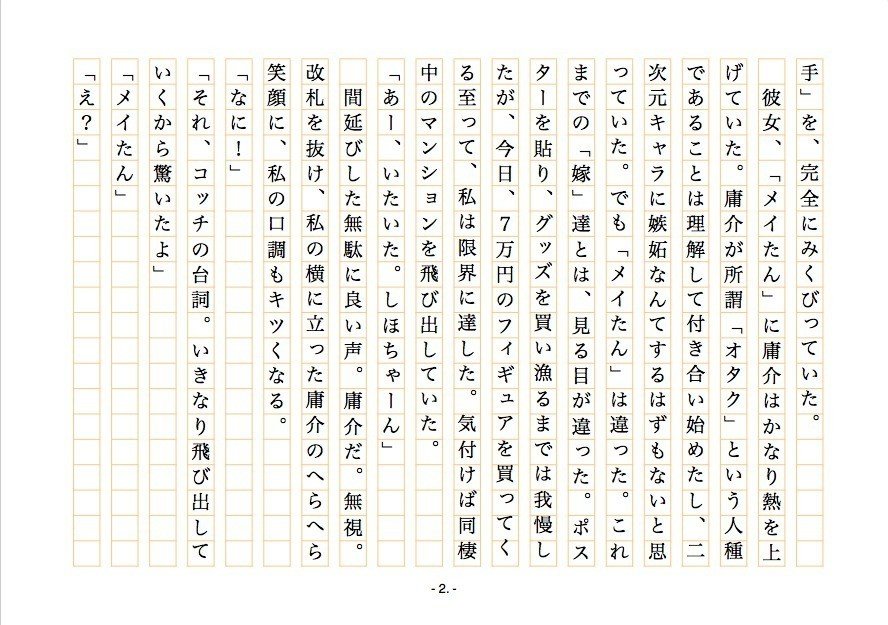 手」を、完全にみくびっていた。
　彼女、「メイたん」に庸介はかなり熱を上
げていた。庸介が所謂「オタク」という人種
であることは理解して付き合い始めたし、二
次元キャラに嫉妬なんてするはずもないと思
っていた。でも「メイたん」は違った。これ
までの「嫁」達とは、見る目が違った。ポス
ターを貼り、グッズを買い漁るまでは我慢し
たが、今日、7万円のフィギュアを買ってく
る至って、私は限界に達した。気付けば同棲
中のマンションを飛び出していた。
「あー、いたいた。しほちゃーん」
　間延びした無駄に良い声。庸介だ。無視。
改札を抜け、私の横に立った庸介のへらへら
笑顔に、私の口調もキツくなる。
「なに！」
「それ、コッチの台詞。いきなり飛び出して
いくから驚いたよ」
「メイたん」
「え？」
- 2. -